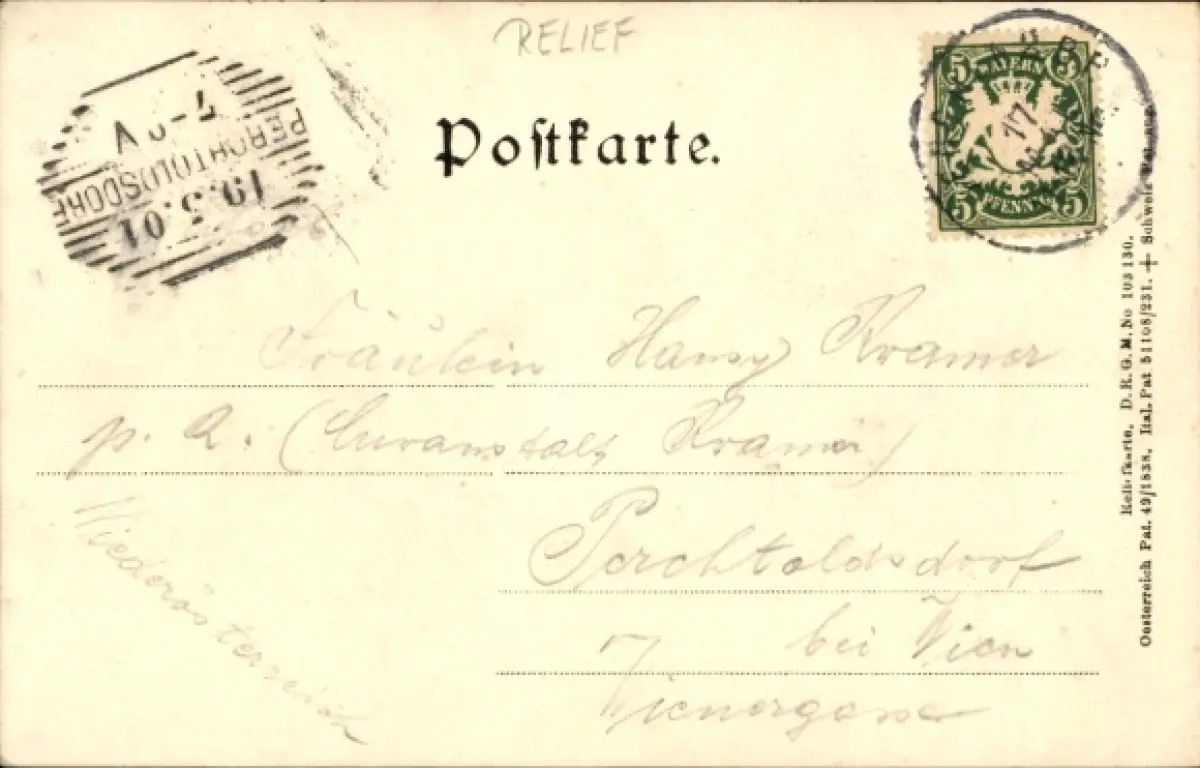 RELIEF
Postkarte.
BAYERN
5 5
17
PFENNIG
5 5
7-
V
PERCHTOLDSDORF
19.3.01
Fräulein Hansy Kramer
p. A. (Curanstalt Kramer)
Perchtoldsdorf
bei Wien
7 Wienergasse
Niederösterreich
Reliefkarte. D. R. G. M. No 103 130.
Oesterreich Pat. 49/1838. Ital. Pat 51108/231. + Schweiz